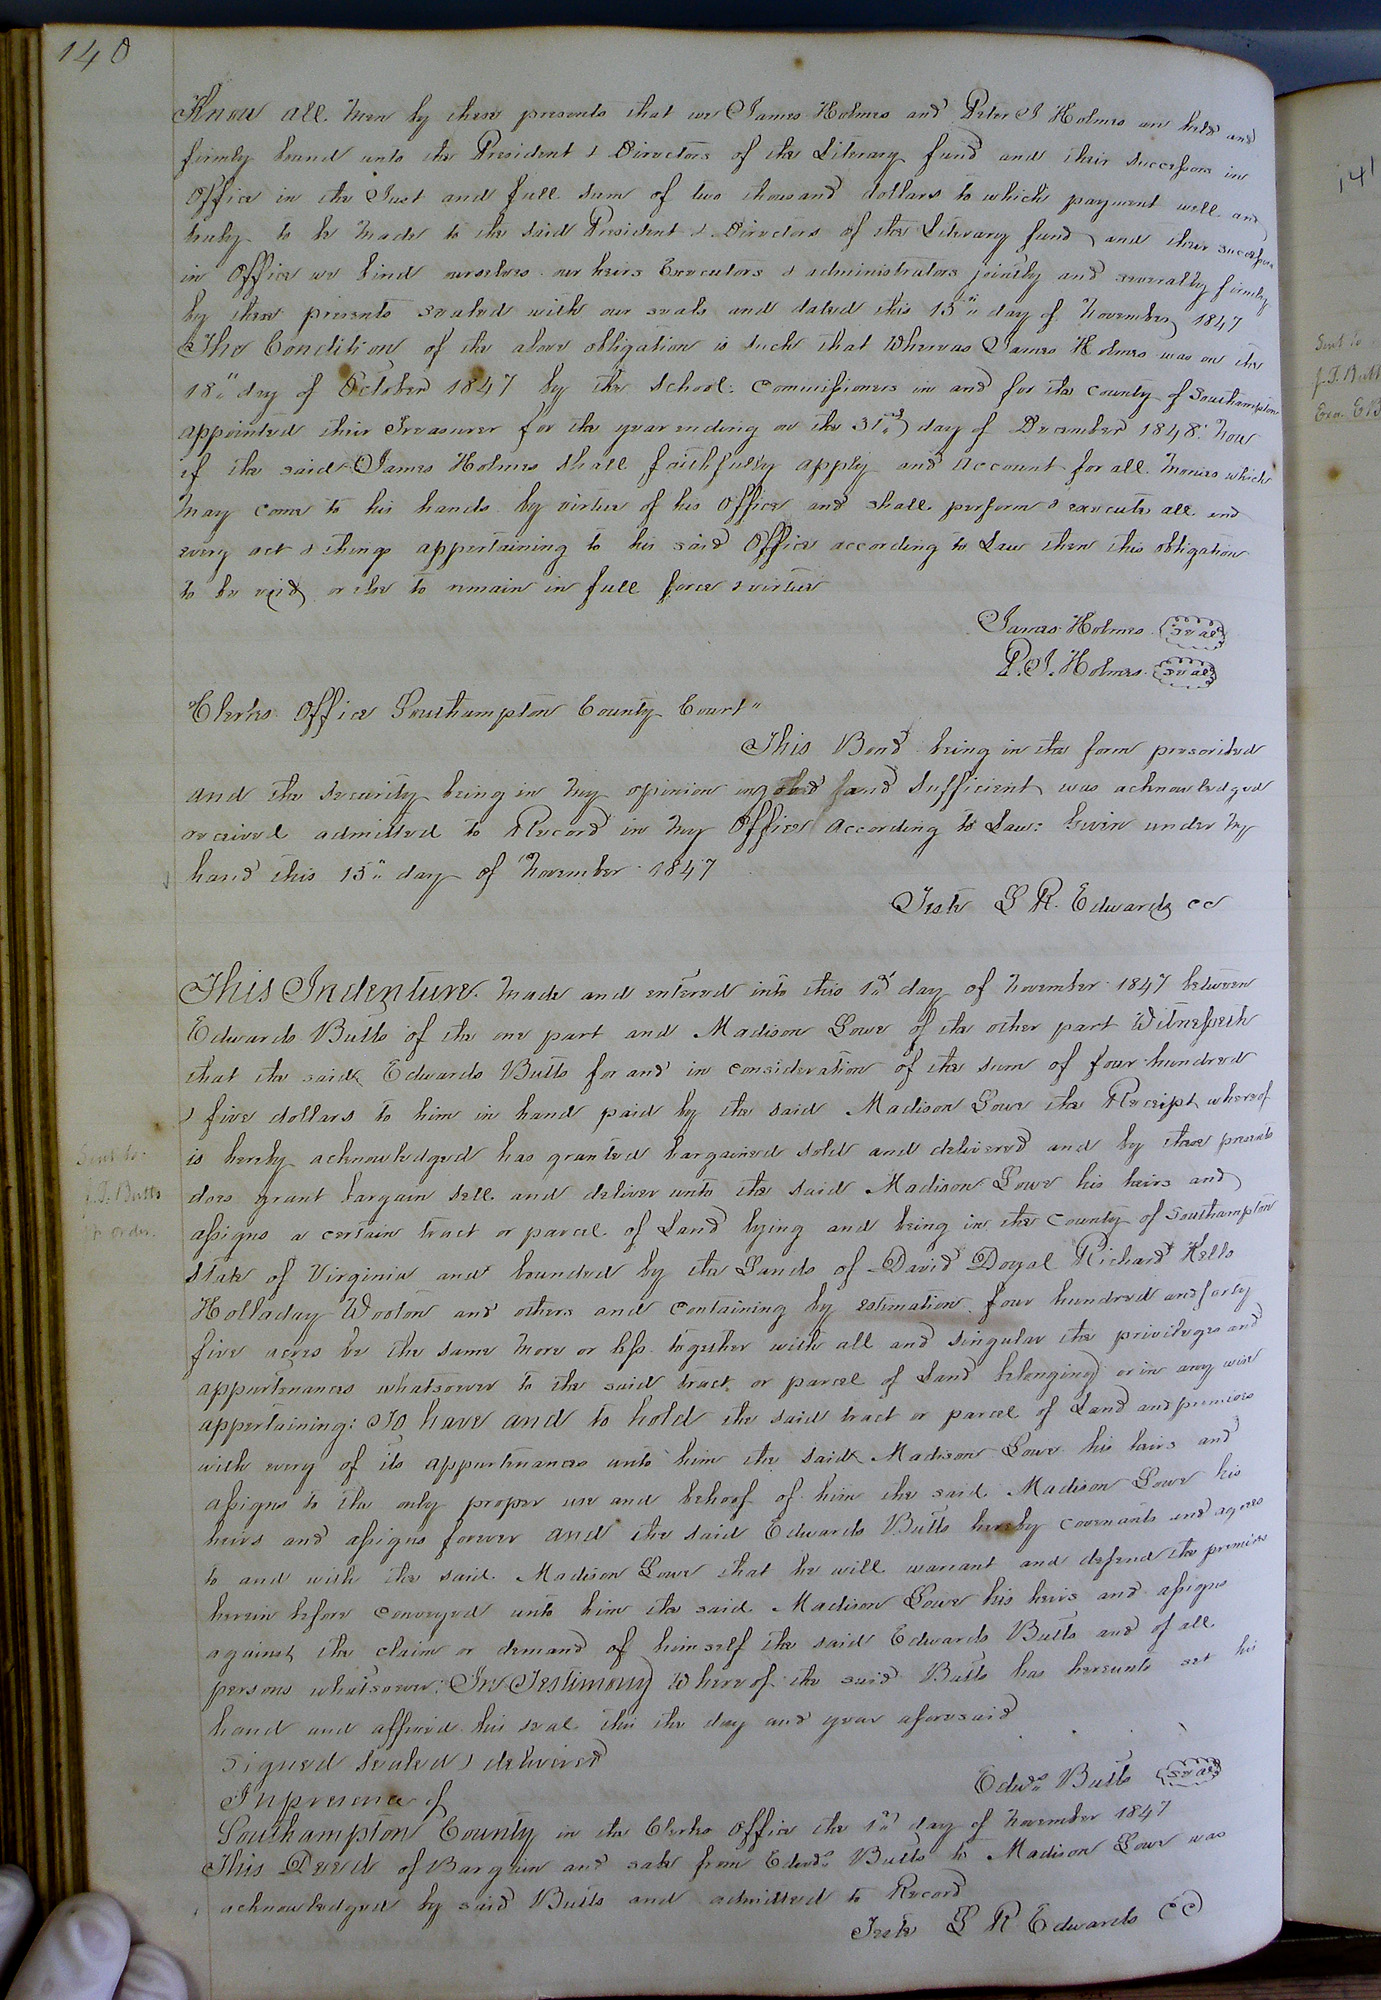 140
Know all Men by these presents that we James Holmes and Peter J Holmes are held and
firmly bound unto the President & Directors of the Literary fund and their successors in
Office in the Just and full sum of two thousand dollars to which payment well and
truly to be Made to the said President & Directors of the Literary fund and their successors
in Office we bind ourselves our heirs Executors & administrators jointly and severally firmly
by these presents sealed with our seals and dated this 15th day of November 1847
The Condition of the above obligation is such that Whereas James Holmes was on the
18th day of October 1847 by the School Commissioners in and for the County of Southampton
appointed their Treasurer for the year ending on the 31st day of December 1848. Now
if the said James Holmes shall faithfully apply and account for all Monies which
May come to his hands by virtue of his Office and shall perform & execute all and
every act & things appertaining to his said Office according to Law then this obligation
to be void or else to remain in full force & virtue
James Holmes Seal
P. J. Holmes Seal
"Clerks Office Southampton County Court"
This Bond being in the form prescribed
and the security being in My opinion good and Sufficient was acknowledged
received admitted to Record in My Office According to Law: Given under My
hand this 15th day of November 1847
Teste L R. Edwards CC
This Indenture Made and entered into this 1st day of November 1847 between
Edwards Butts of the one part and Madison Lowe of the other part Witnesseth
that the said Edwards Butts for and in consideration of the sum of four hundred
& five dollars to him in hand paid by the said Madison Lowe the Receipt whereof
is hereby acknowledged has granted bargained sold and delivered and by these presents
does grant bargain sell and deliver unto the said Madison Lowe his heirs and
assigns a certain tract or parcel of Land lying and being in the County of Southampton
State of Virginia and bounded by the Lands of David Doyal Richard Kello
Holladay Wooton and others and Containing by estimation four hundred and forty
five acres be the same More or less together with all and singular the privileges and
appurtenances whatsoever to the said tract or parcel of Land belonging or in any wise
appertaining: To have and to hold the said tract or parcel of Land and premises
with every of its appurtenances unto him the said Madison Lowe his heirs and
assigns to the only proper use and behoof of him the said Madison Lowe his
heirs and assigns forever and the said Edwards Butts hereby covenants and agrees
to and with the said Madison Lowe that he will warrant and defend the premises
herein before conveyed unto him the said Madison Lowe his heirs and assigns
against the claim or demand of himself the said Edwards Butts and of all
persons whatsoever. In Testimony Whereof the said Butts has hereunto set his
hand and affixed his seal this the day and year aforesaid
Signed Sealed & delivered
In presence of
Edwds Butts Seal
Southampton County in the Clerks Office the 1st day of November 1847
This Deed of Bargain and sale from Edwds Butts to Madison Lowe was
acknowledged by said Butts and admitted to Record
Teste L R Edwards CC
Sent to
J. T. Butts
order.
141
Sent to
J. T. Butt
Exo. E B